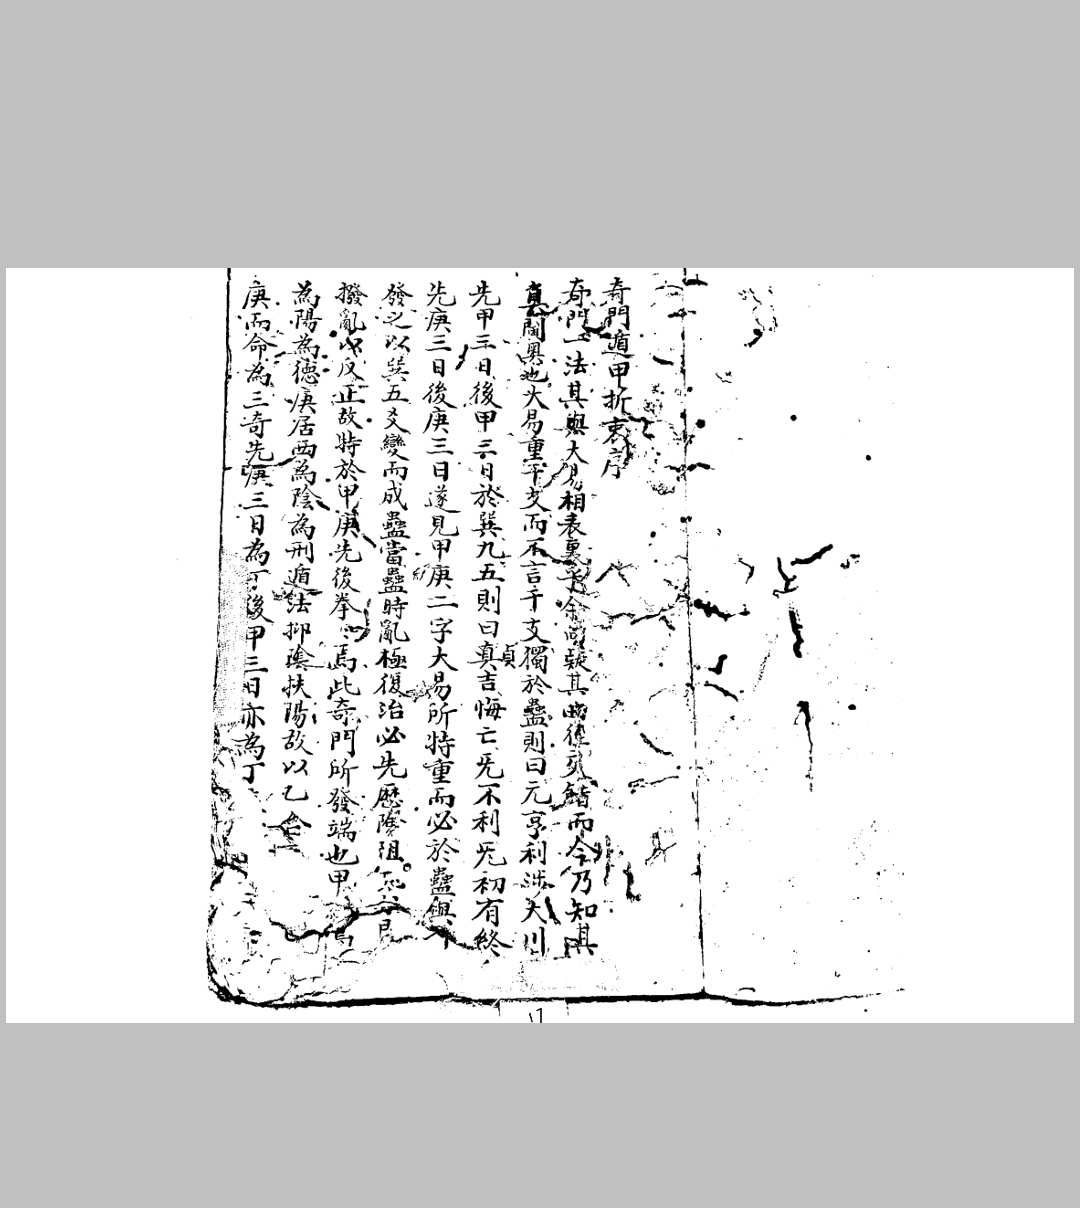 奇門遁甲折衷序
奇門一法其與大易相表裏乎余嘗疑其而今乃知其
真閫奧也大易重干支而不言干支獨於蠱則曰元亨利涉大川
先甲三日後甲三日於巽九五則曰真吉悔亡旡不利旡初有終
貞
先庚三日後庚三日遂見甲庚二字大易所特重而必於蠱與
發之以巽五爻變而成蠱當蠱時亂極復治必先歷險阻
撥亂以反正故特於甲庚先後拳焉此奇門所發端也甲
為陽為德庚居西為陰為刑遁法抑陰扶陽故以乙合
庚而命為三奇先庚三日為丁後甲三日亦為丁
17